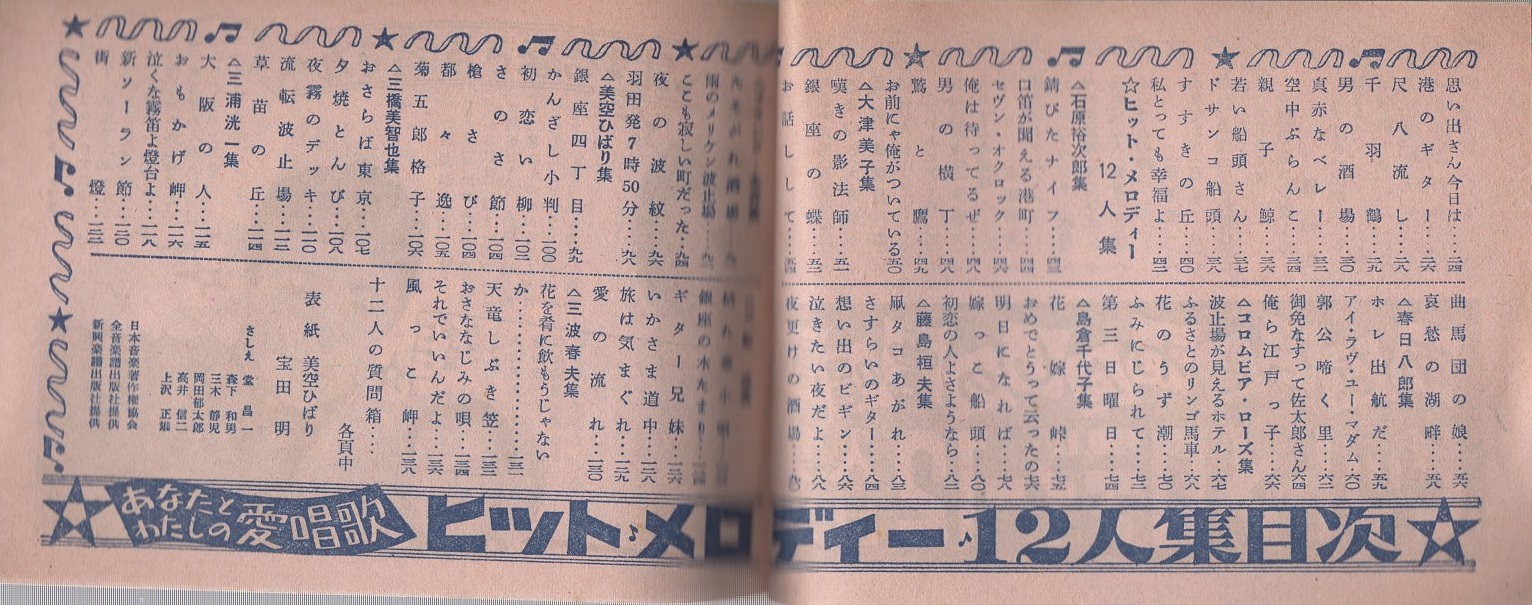 思い出さん今日は‥‥二四
港のギター‥‥二六
尺八流し‥‥二八
千羽鶴‥‥二九
男の酒場‥‥三〇
真赤なベレー‥‥三二
空中ぶらんこ‥‥三四
親子鯨‥‥三六
若い船頭さん‥‥三七
ドサンコ船頭‥‥三八
すすきの丘‥‥四〇
私とっても幸福よ‥‥四二
☆ヒット・メロディー
12人集
△石原裕次郎集
錆びたナイフ‥‥四三
口笛が聞える港町‥‥四四
セヴン・オクロック‥‥四六
俺は待ってるぜ‥‥四七
男の横丁‥‥四八
鷲と鷹‥‥四九
お前にゃ俺がついている五〇
△大津美子集
嘆きの影法師‥‥五一
銀座の蝶‥‥五二
お話しして‥‥五四
曲馬団の娘‥‥五六
哀愁の湖畔‥‥五八
△春日八郎集
ホレ出航だ‥‥五九
アイ・ラヴ・ユー・マダム‥六〇
郭公啼く里‥‥六二
御免なすって佐太郎さん六四
俺ら江戸っ子‥‥六六
△コロムビア・ローズ集
波止場が見えるホテル‥六七
ふるさとのリンゴ馬車‥六八
花のうず潮‥‥七〇
ふみにじられて‥‥七二
第三日曜日‥‥七四
△島倉千代子集
花嫁峠‥‥七五
おめでとうって云ったの七六
明日になれば‥‥七八
嫁っこ船頭‥‥八〇
初恋の人よさようなら‥八二
△藤島桓夫集
凧タコあがれ‥‥八三
さすらいのギター‥‥八四
想い出のビギン‥‥八六
泣きたい夜だよ‥‥八八
夜更けの酒場‥‥九〇
雨のメリケン波止場
ここも寂しい町だった‥九四
夜の波紋‥‥九六
羽田発7時50分‥‥九八
△美空ひばり集
銀座四丁目‥‥九九
かんざし小判‥‥一〇〇
初恋い柳‥‥一〇二
さのさ節‥‥一〇四
槍さび‥‥一〇四
都々逸‥‥一〇五
菊五郎格子‥‥一〇六
△三橋美智也集
おさらば東京‥‥一〇七
夕焼とんび‥‥一〇八
夜霧のデッキ‥‥一一〇
流転波止場‥‥一一二
草苗の丘‥‥一一四
△三浦洸一集
大阪の人‥‥一一五
おもかげ岬‥‥一一六
泣くな霧笛よ燈台よ‥‥一一八
新ソーラン節‥‥一二〇
街燈‥‥一二二
銀座の水たまり
ギター兄妹‥‥一二六
いかさま道中‥‥一二八
旅は気まぐれ‥‥一二九
愛の流れ‥‥一三〇
△三波春夫集
花を肴に飲もうじゃない
か‥‥‥一三一
天竜しぶき笠‥‥一三二
おさななじみの唄‥‥一三四
それでいいんだよ‥‥一三六
風っこ岬‥‥一三八
十二人の質問箱‥‥
各頁中
表紙 美空ひばり
宝田明
さしえ 堂昌一
森下和男
三木静児
岡田郁太郎
高井信二
上沢正雄
日本音楽著作権協会
全音楽譜出版社提供
新興楽譜出版社提供
あなたと
わたしの愛唱歌
ヒット♪メロディー♪12人集目次